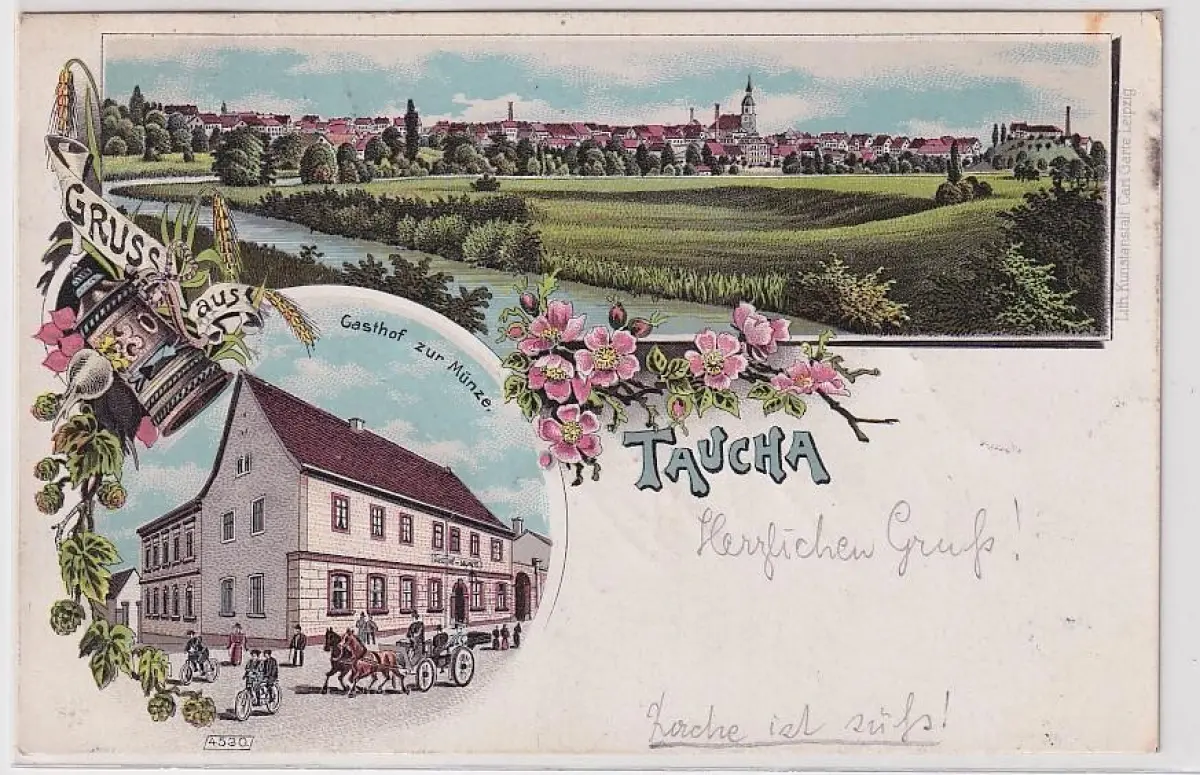 GRUSS
aus
Gasthof zur Münze.
TAUCHA
Herzlichen Gruß!
ist süß!
4530.
Lith. Kunstanstalt Carl Garte Leipzig